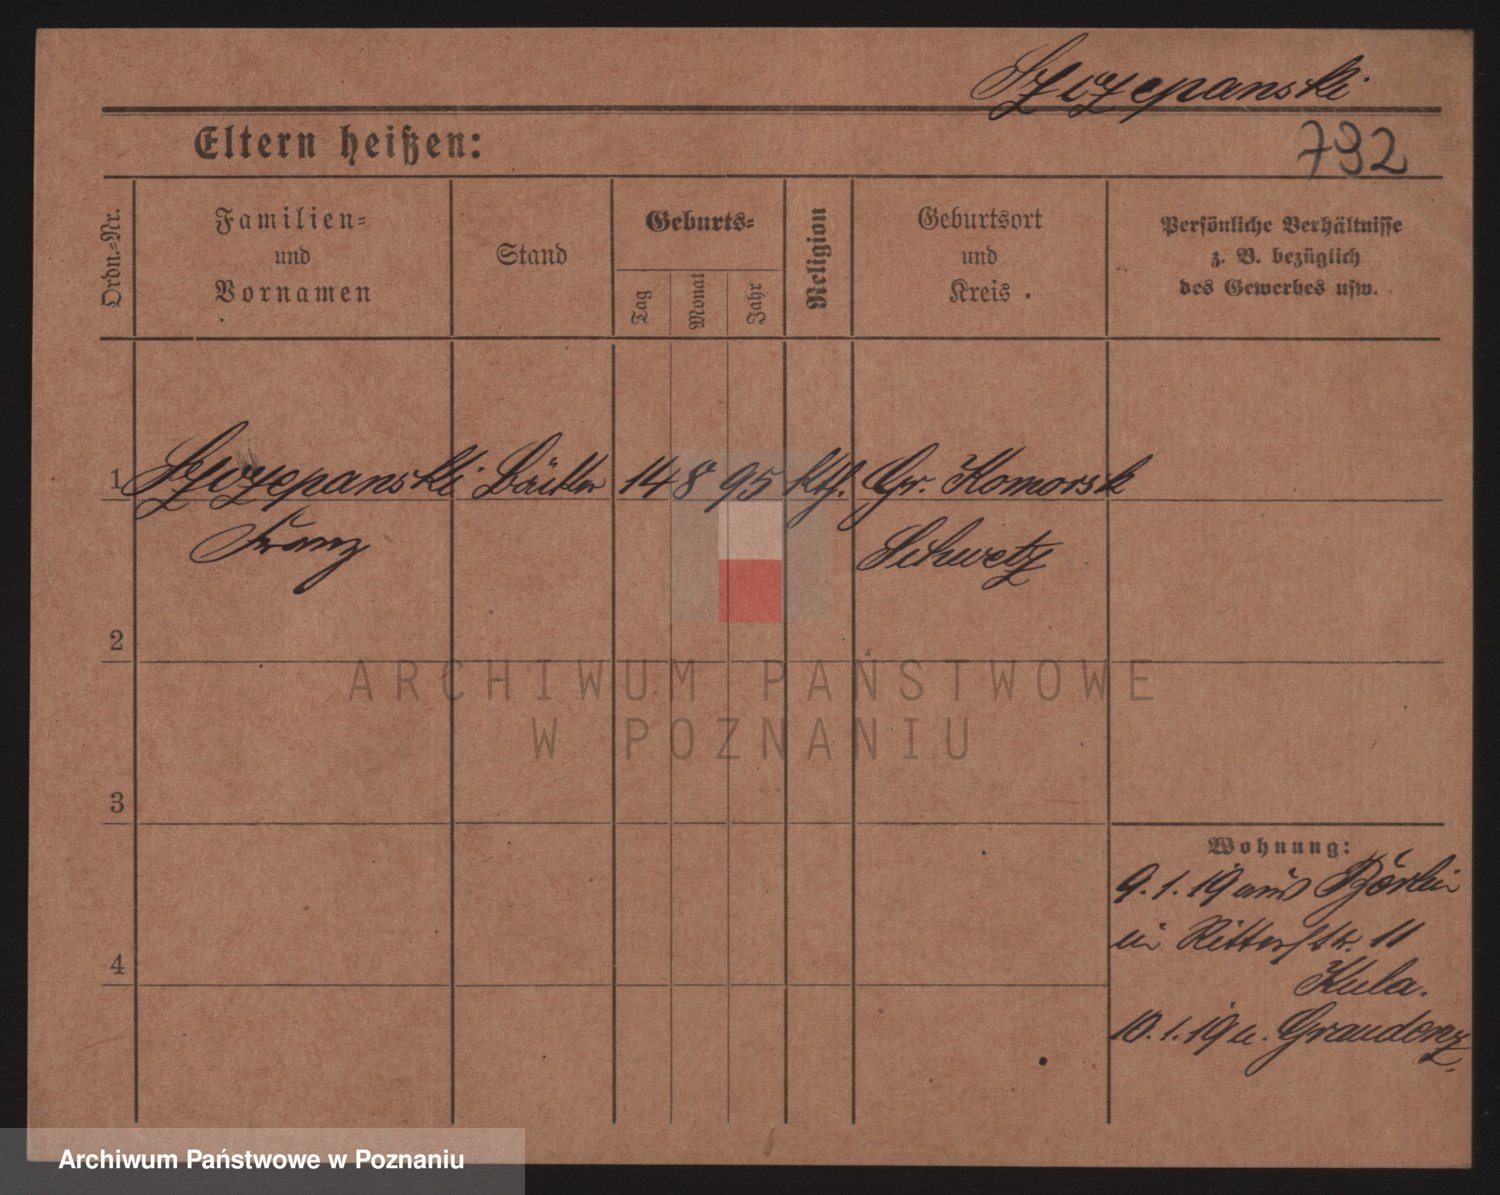 Szczepanski
Eltern heißen:
792
Ordn.-Nr.
Familien-
und
Vornamen
Stand
Geburts-
Tag
Monat
Jahr
Religion
Geburtsort
und
Kreis.
Persönliche Verhältnisse
z. B. bezüglich
des Gewerbes usw.
1 Szczepanski Bäcker 14 8 95 kth. Gr. Komorsk
Franz Schwetz
2
ARCHIWUM PAŃSTWOWE
W POZNANIU
3
Wohnung:
9.1.19 aus
in Ritterstr. 11
Kula.
4
10.1.19 n. Graudenz.
Archiwum Państwowe w Poznaniu